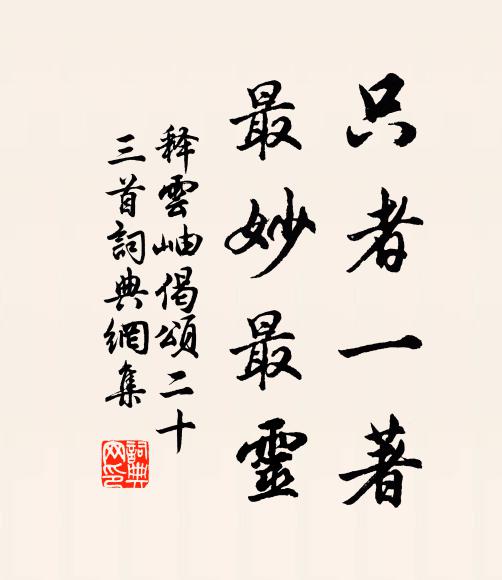 只者一著
最妙最靈
释雲岫偈頌二十
三首詞典網集
詞典網印